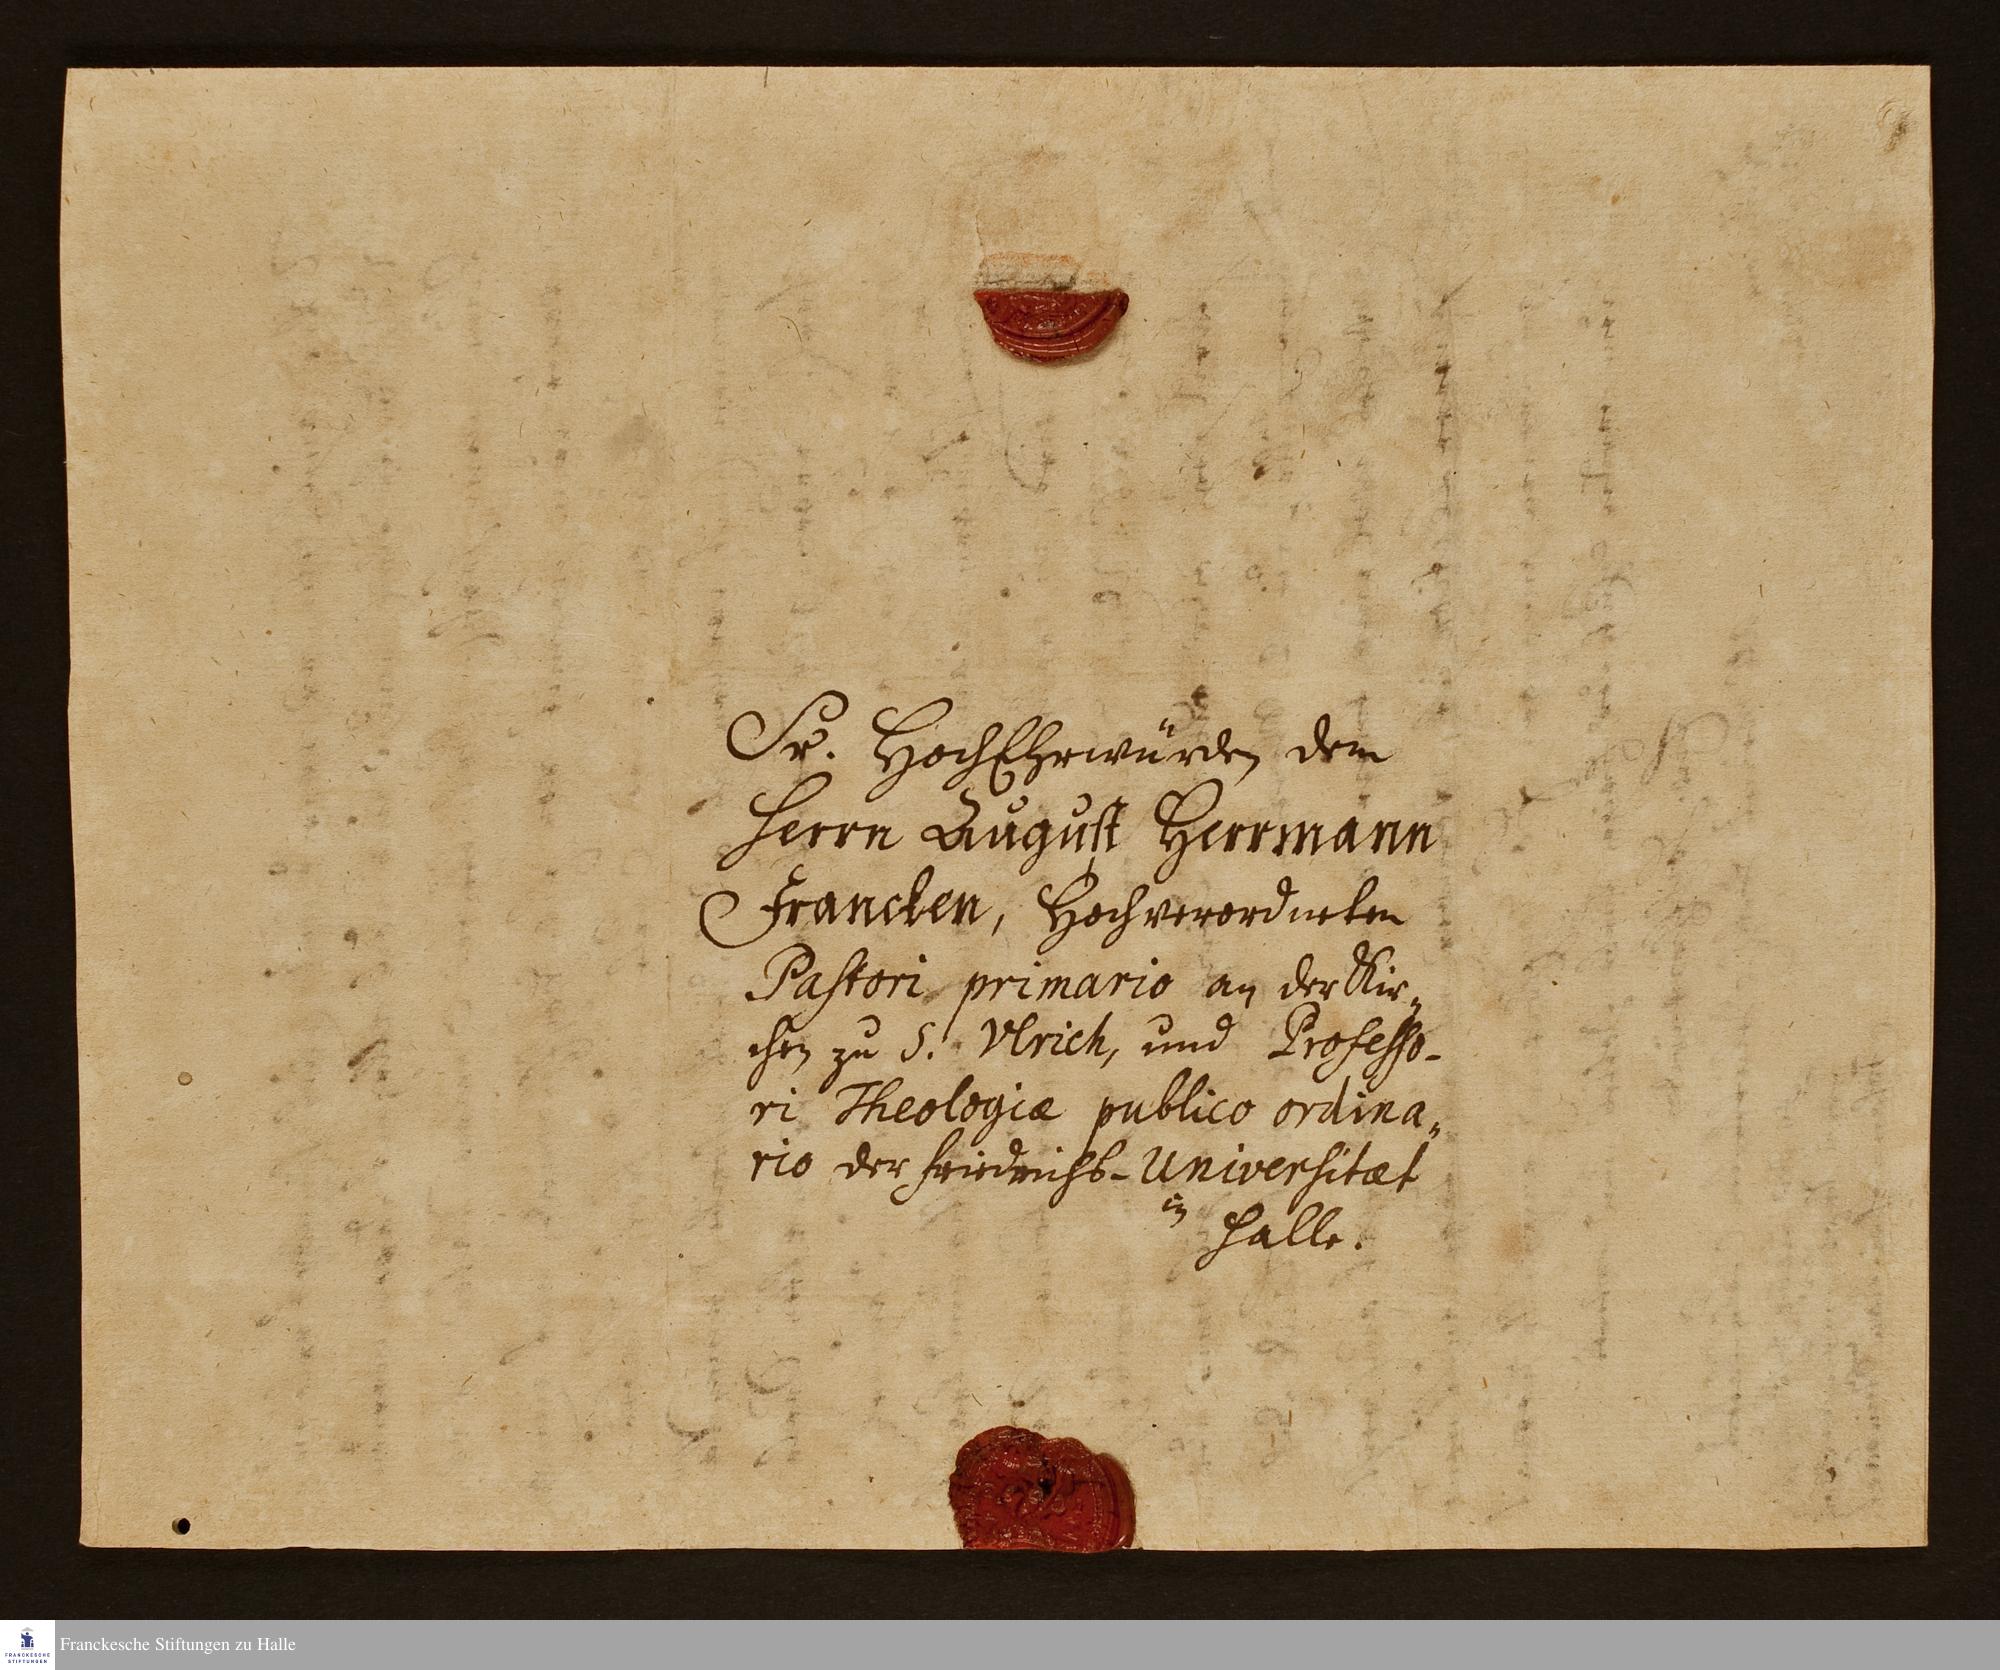 Sr. HochEhrwürden dem
Herrn August Herrmann
Francken, Hochverordneten
Pastori primario an der Kir„
chen zu S. Ulrich, und Professo-
ri Theologiæ publico ordina„
rio der Friedrichs-Universitæt
in
Halle.
FRANCKESCHE
STIFTUNGEN
Franckesche Stiftungen zu Halle